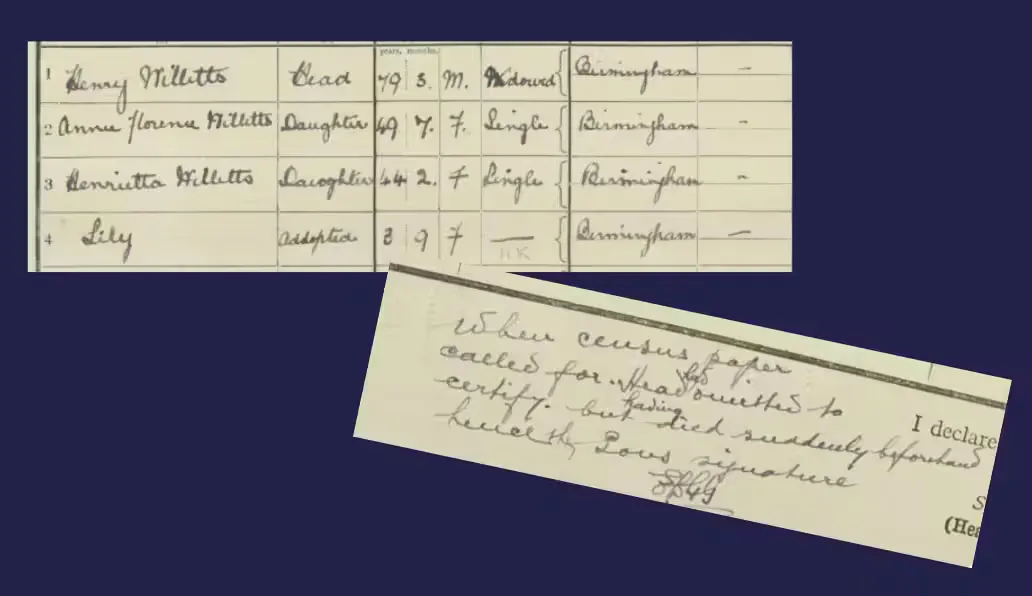 years. months.
1 Henry Willetts Head 79 3. M. Widowed Birmingham –
2 Annie Florence Willetts Daughter 49 7. F. Single Birmingham –
3 Henrietta Willetts Daughter 44 2. F Single Birmingham –
4 Lily Addopted 3 9 F — Birmingham —
When census paper
called for. Head had omitted to
certify. but having died suddenly beforehand
hence the signature
I declare
S
(Hea